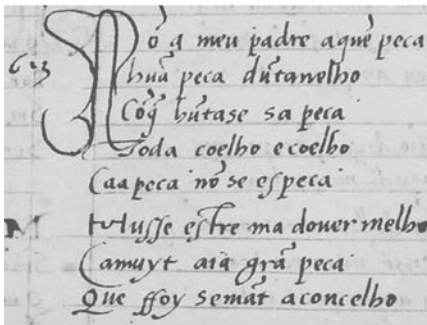 Nõ á meu padre a quẽ peca
623
huũ peca dũtanelho
Cõq̃ hũtase sa peca
Toda coelho e coelho
Caa peca nõ se especa
tolusse estre ma dover melho
Camuyt aia grã peca
Que ffoy semãt aconcelho